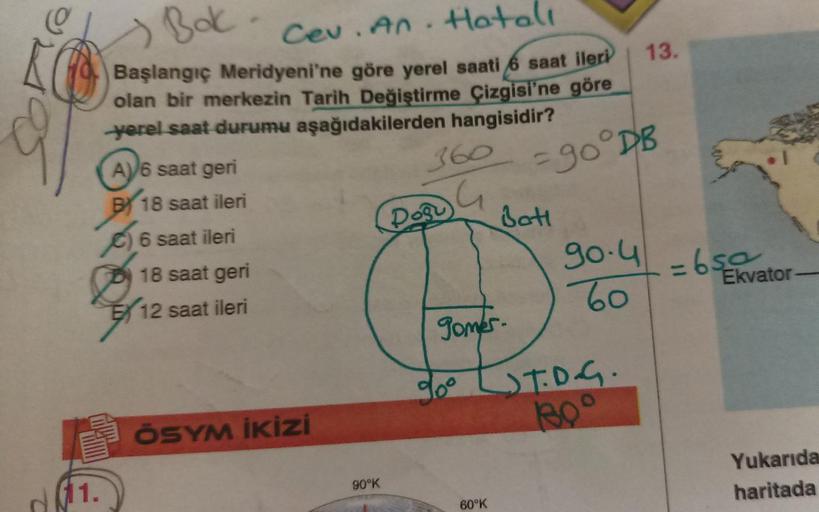 Bak.
Cev. An. Hatalı
10. Başlangıç Meridyeni'ne göre yerel saati 6 saat ileri
olan bir merkezin Tarih Değiştirme Çizgisi'ne göre
yerel saat durumu aşağıdakilerden hangisidir?
A) 6 saat geri
B) 18 saat ileri
C) 6 saat ileri
D) 18 saat geri
E) 12 saat ileri
360
4
= 90° DB
Doğu
Batı
90 mer.
90°
T.D.Ç.
180°
90.4
60
= 6 sa
ÖSYM İKİZİ
11.
90°K
60°K
13.
I
Ekvator
Yukarıda
haritada